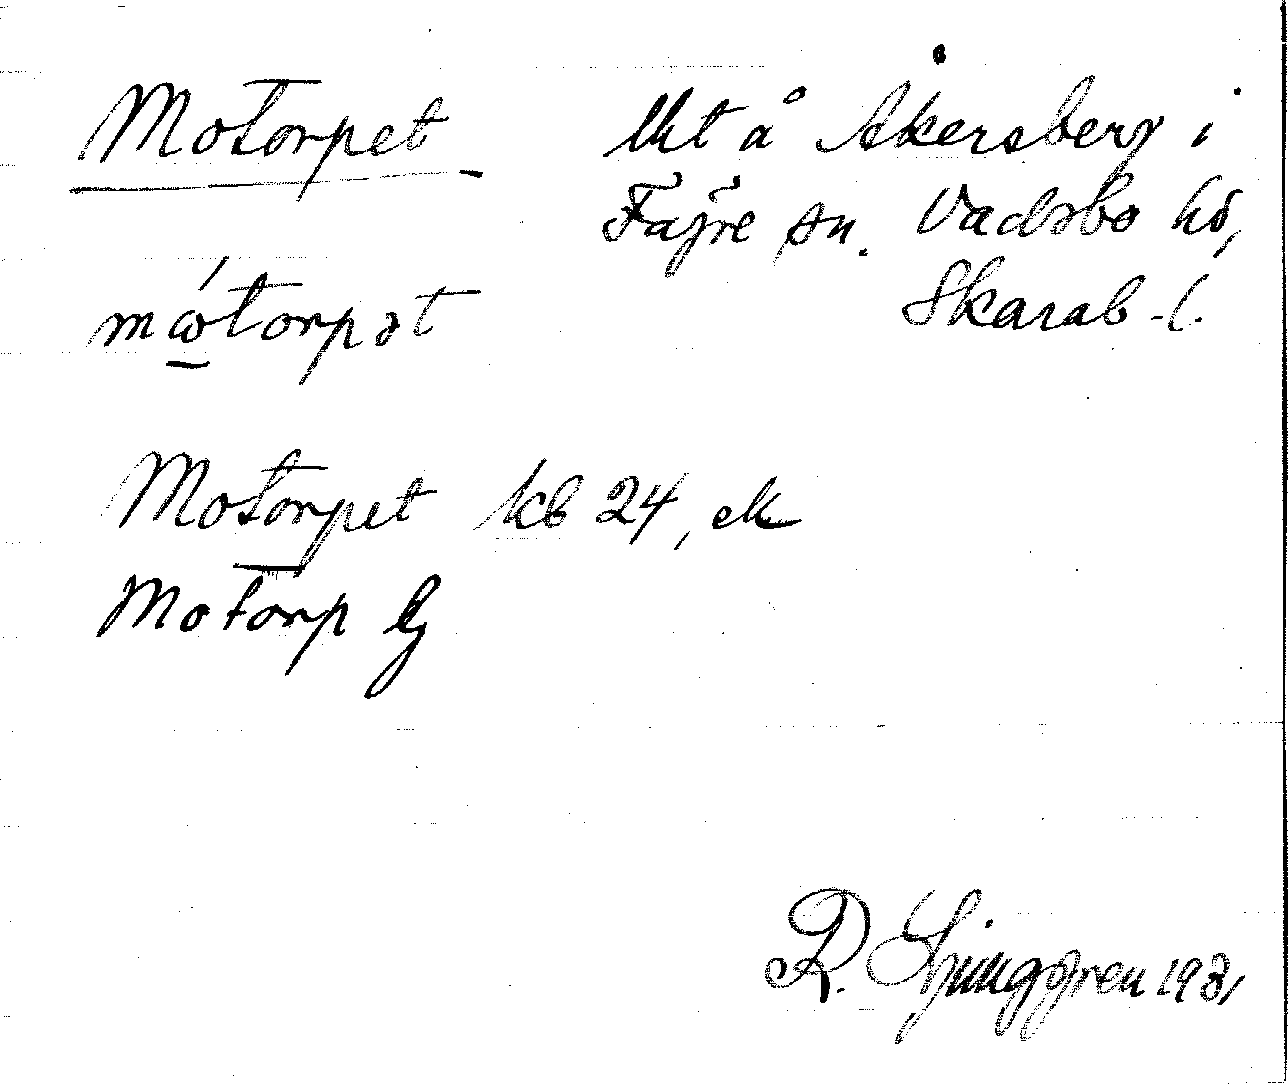 Motorpet
Utt å Åkersberg i
Fägre sn. Vadsbo hd,
Skarab. l.
mώ̲torpət
Motorpet kb 24, ek
Motorp lj
R. Ljunggren 1931